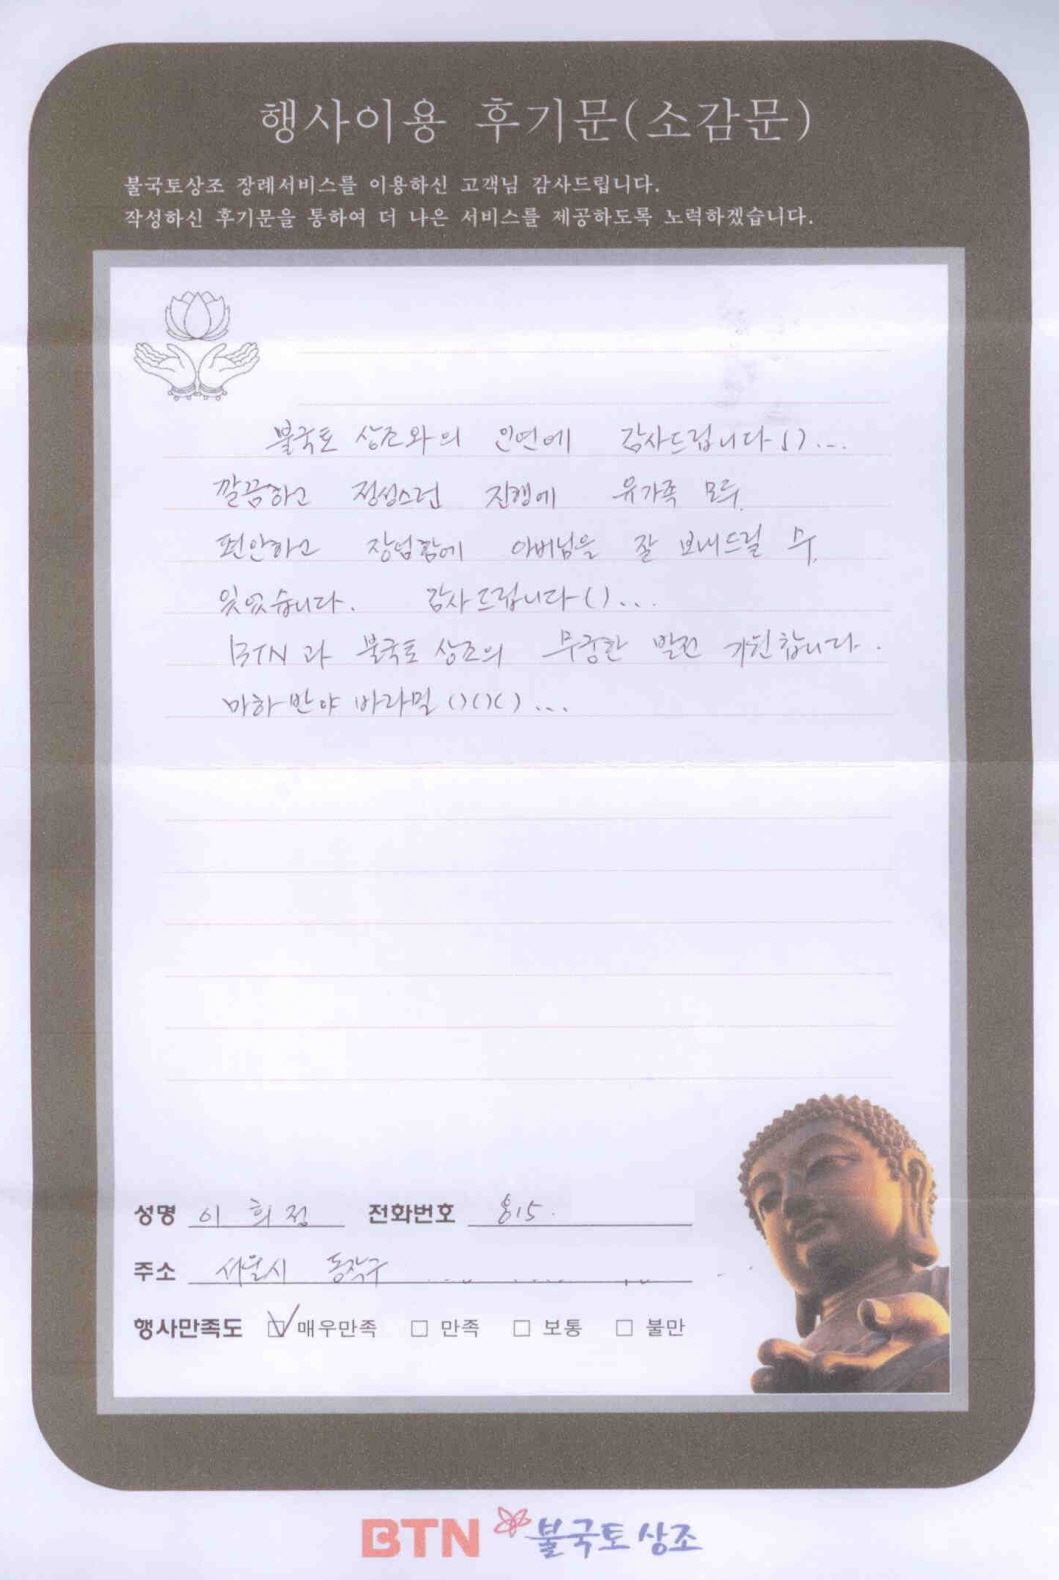 행사이용 후기문(소감문)
불국토상조 장례서비스를 이용하신 고객님 감사드립니다.
작성하신 후기문을 통하여 더 나은 서비스를 제공하도록 노력하겠습니다.
불국토 상조와의 인연에 감사드립니다()...
깔끔하고 정성스런 진행에 유가족 모두
편안하고 장엄함에 아버님을 잘 보내드릴 수
있었습니다. 감사드립니다()...
BTN과 불국토 상조의 무궁한 발전 기원합니다.
마하반야 바라밀()()()...
성명 이희정 전화번호 815.
주소 서울시 동작구
행사만족도 ☑ 매우만족 □ 만족 □ 보통 □ 불만
BTN 불국토 상조